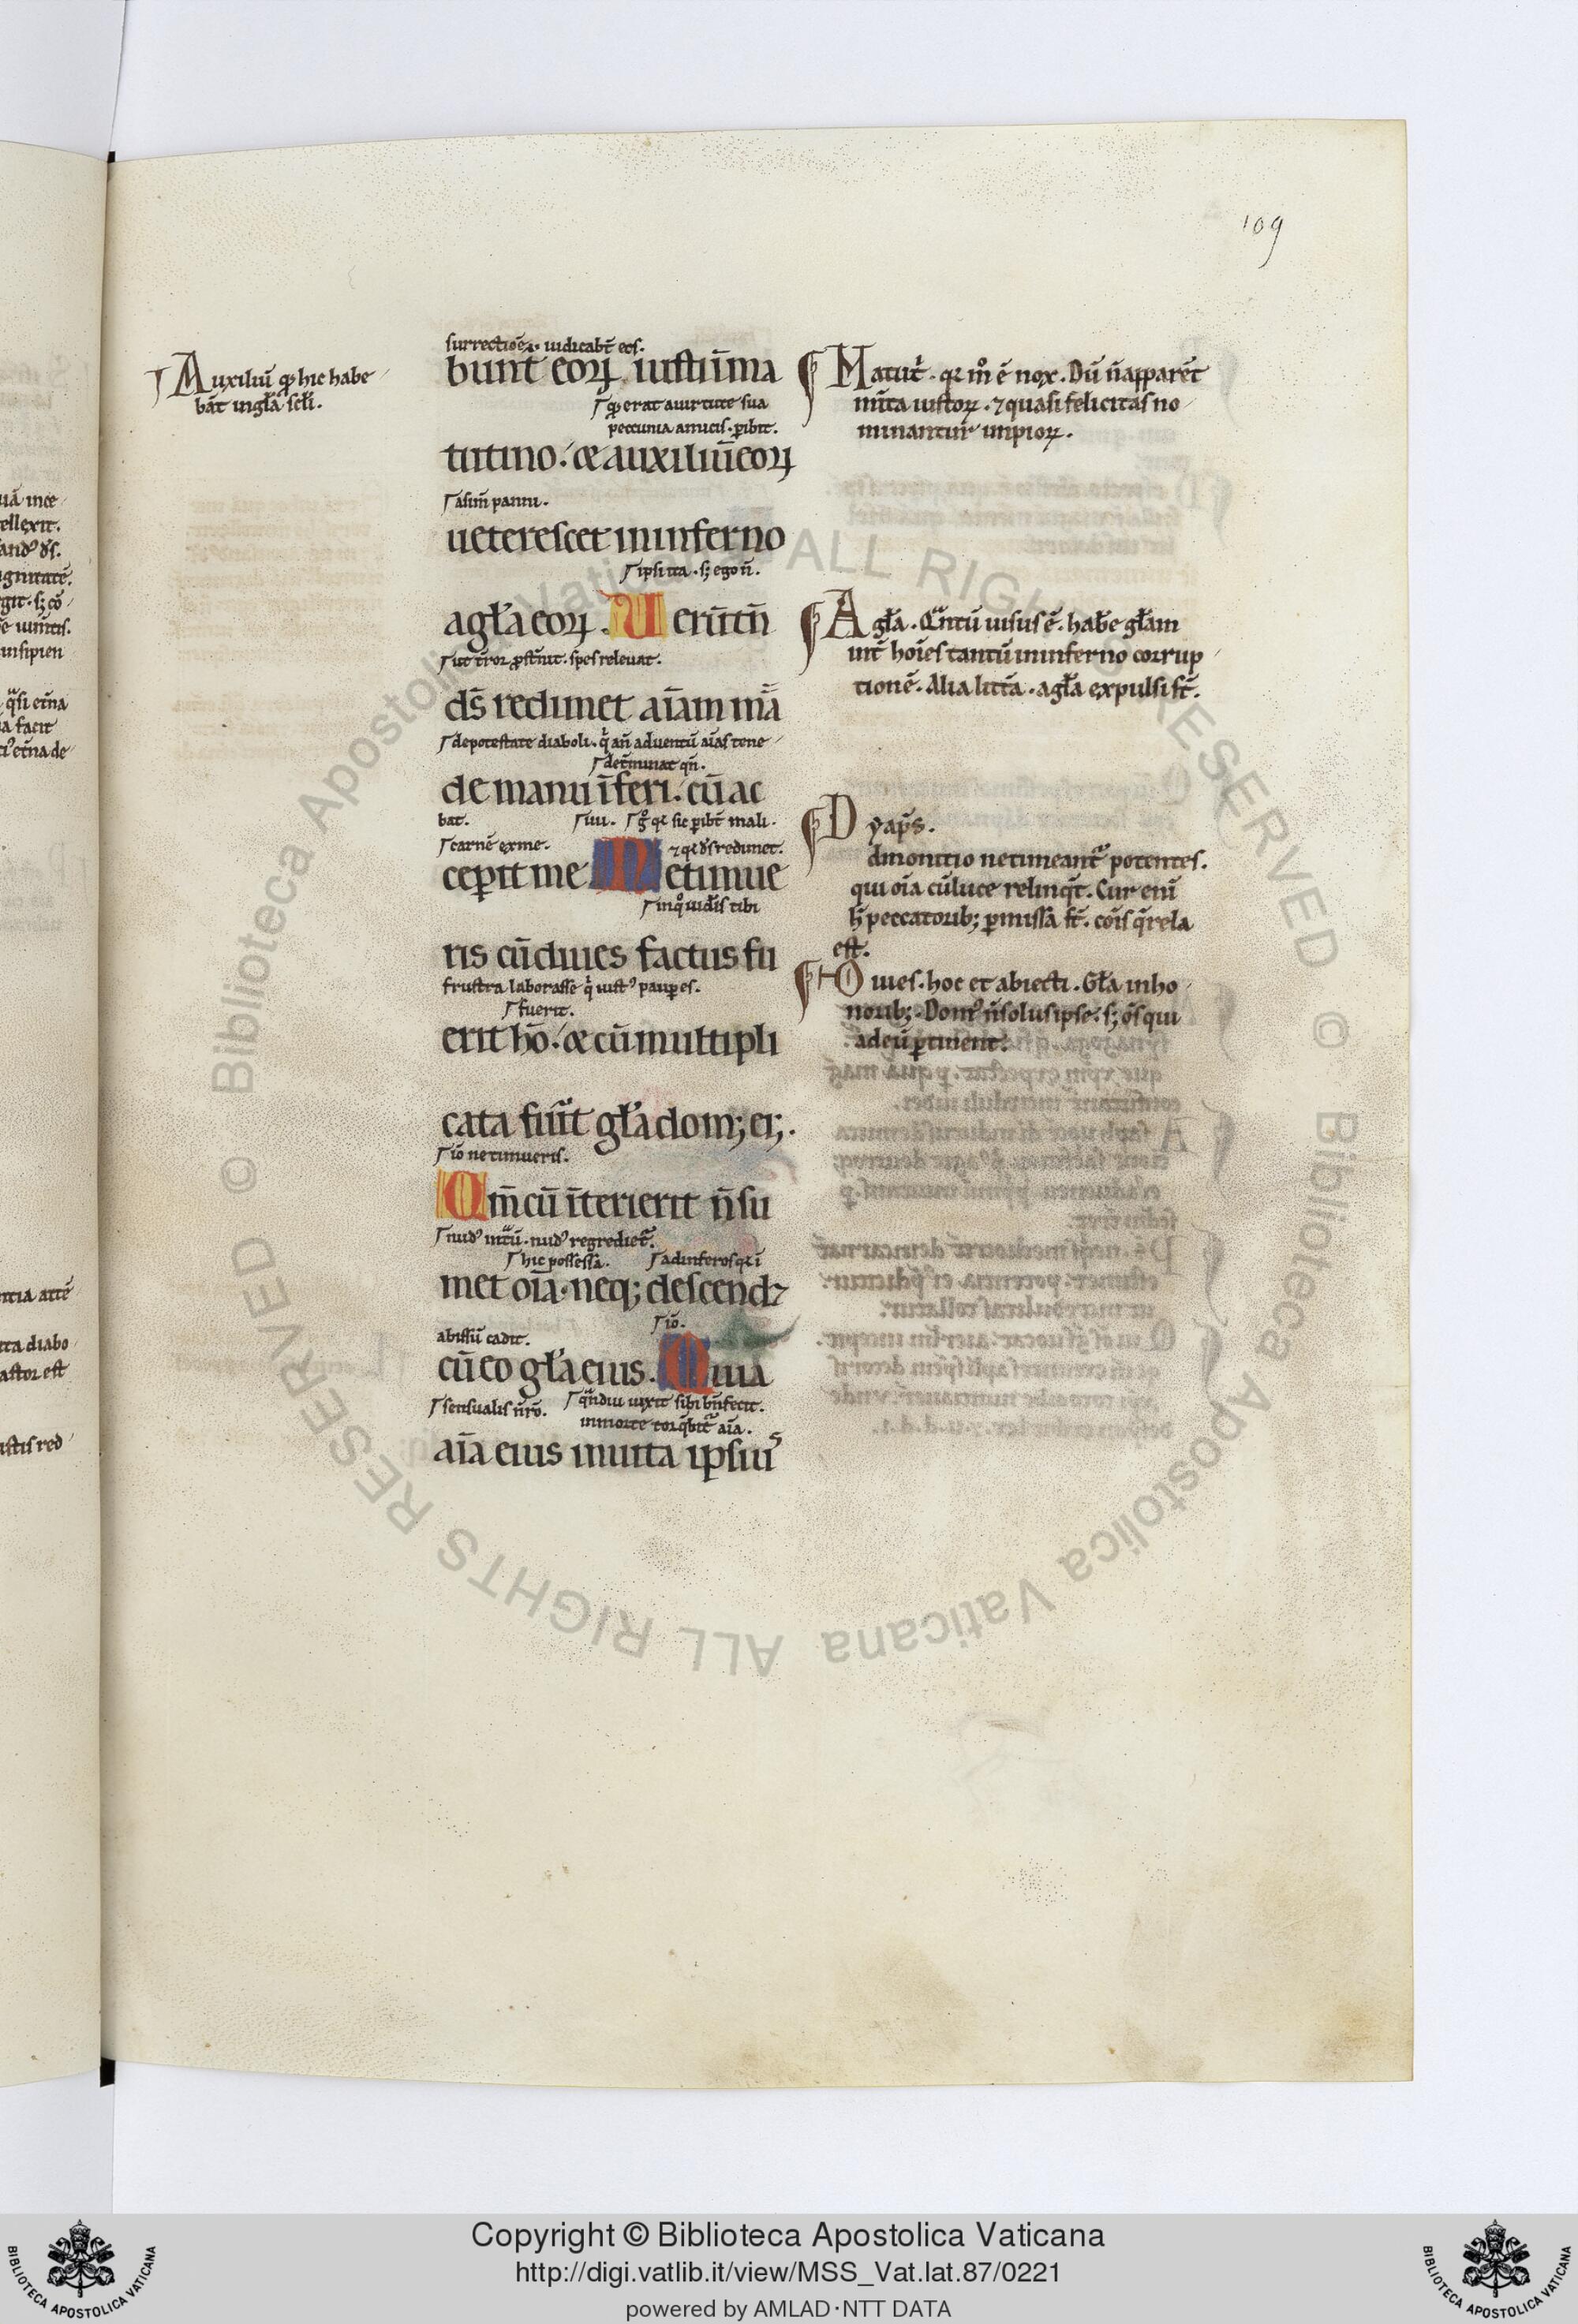 109
Auxiliū qđ hic habe
bāt in gła scłi.
surrectiōē. iudicabt̄ eos.
bunt eoꝝ iusti in ma
qđ erat a uirtute sua
peccunia amicis. ꝑibit.
tutino. & auxiliū eoꝝ
a sim̄ panni.
ueterescet in inferno
ipsi ita. sꝫ ego n̄.
a gła eoꝝ. Uerūtn̄
ut t̄ror ꝓst̄nit. spes releuat.
ds̄ redimet aīam mā
de potestate diaboli. q̇ an̄ aduentū aīas tene
det̄minat qn̄.
de manu īferi. cū ac
bat.
carnē exme.
⁊ qꝛ ds̄ redimet.
ceꝑit me Ne timue
ris cū diues factus fu
frustra laborasse q̇ iustꝰ pauꝑes.
fuerit.
erit hō. & cū multipli
cata fuīt gła domꝰ eiꝰ.
iō ne timueris.
Qm̄ cū īterierit n̄ su
nudꝰ int̄ū. nudꝰ regrediet̄.
hic possessa.
ad inferos qꝛ ī
met oīa. neqꝫ descendꝫ
iō.
abissū cadit.
cū eo gła eius. Quia
sensualis n̄rō.
qͣndiu uixit sibi bn̄fecit.
in morte torq̄bit̄ aīa.
aīa eius in uita ipsiuꝰ
Matut̄. qꝛ m̊ ē nox. Dū n̄ apparēt
mīta iustoꝝ. ⁊ quasi felicitas no
minantur impioꝝ.
A gła. Qͣntū uisus ē. habe głam
unt̄ hoīes tantū in inferno corrup
tionē. Alia litt̄a. a gła expulsi st̄.
Dyap̄s.
dmonitio ne timeant̄ potentes.
qui oīa cū luce relinq̄t. Cur enī
h̄ peccatoribꝫ ꝑmissa st̄. cōis q̄rela
est.
Diues. hoc et abiecti. Gła in ho
noribꝫ. Domꝰ n̄ solus ipse. sꝫ oēs qui
ad eū ꝑtinent.
Copyright © Biblioteca Apostolica Vaticana
http://digi.vatlib.it/view/MSS_Vat.lat.87/0221
powered by AMLAD·NTT DATA
BIBLIOTECA APOSTOLICA VATICANA
BIBLIOTECA APOSTOLICA VATICANA
© Biblioteca Apostolica Vaticana ALL RIGHTS RESERVED
© Biblioteca Apostolica Vaticana ALL RIGHTS RESERVED